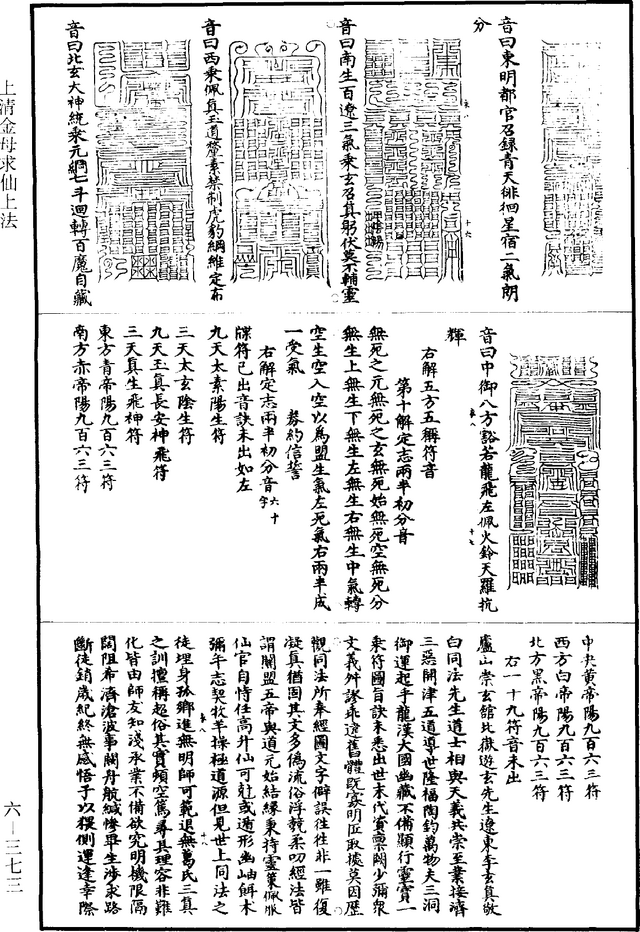 音曰東明都官召錄青天徘徊星宿二氣朗
分
音曰南生百遼三氣乘玄召真躬伏莫不輔靈
音曰西乘佩真玉道齋素禁制虎豹綱維定布
音曰北玄大神統乘元綱七斗迴轉百魔自藏
上清金母求仙上法
音曰中御八方豁若龍飛左佩火鈴天羅抗
輝
右解五方五稱符音
第十解定志兩半初分音
無死之元無死之玄無死始無死空無死分
無生上無生下無生左無生右無生中氣轉
空生空入空以為盟生氣左死氣右兩半成
一受氣 券約信誓
右解定志兩半初分音六十字
牒符已出音訣未出如左
九天太素陽生符
三天太玄陰生符
九天玉真長安神飛符
三天真生飛神符
東方青帝陽九百六三符
南方赤帝陽九百六三符
中央黃帝陽九百六三符
西方白帝陽九百六三符
北方黑帝陽九百六三符
右一十九符音未出
廬山崇玄館北嶽遊玄先生遼東李玄真敬
白同法先生道士相與天義共崇至業接濟
三惡開津五道導世隆福陶鈞萬物夫三洞
御運起乎龍漢大國幽藏不備顯行靈寶一
乘符圖旨訣未悉出世末代資稟闕少彌衆
文義舛謬乖違舊體旣寡明匠取據莫因歷
觀同法所奉經圖文字僻誤往往非一雖復
凝真猶固其文多僞流俗浮競柔叨經法皆
謂關盟五帝與道元始結緣秉持靈策佩服
仙官自恃任高升仙可尅或遁形幽岫餌木
彌年志契牧羊操極道源但見世上同法之
徒埋身孤鄉進無明師可範退無葛氏三真
之訓擅稱超俗其實頗空篤尋其理容非難
化皆由師友知淺承業不備欲究明機限隔
闊阻希濟滄波事闕舟航緘慘畢生涉求路
斷徒銷歲紀終無感悟予以猥側運達幸際
六—三七三